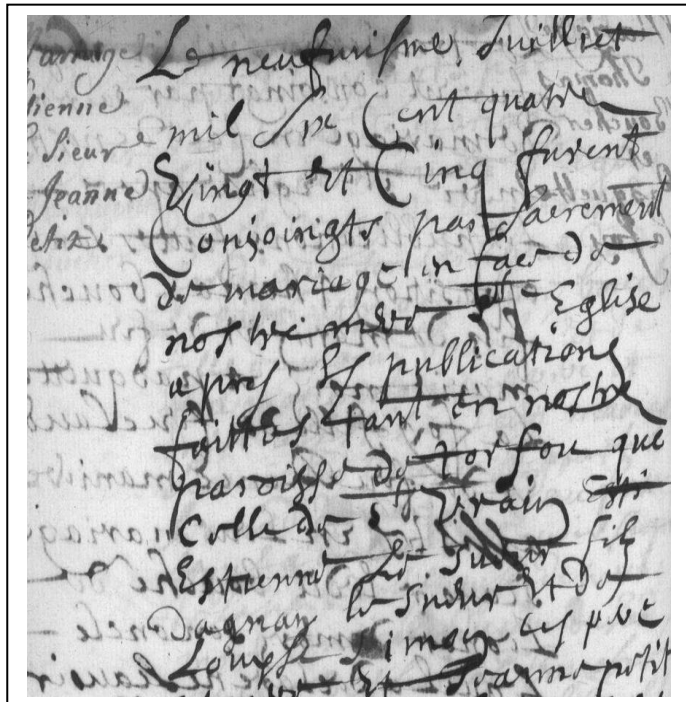 mariage
Estienne
le Sieur
Jeanne
petit
Le neufuisme Juilliet
mil six Cent quatre
Vingt et Cinq furent
Conjoingts par sacrement
de mariage in face de
nostre mere Ste Eglise
apres les publications
faittes tant en nostre
paroisse de torfou que
Celle de St Vrain
Estienne le Sueur fils
dagnan le Sueur et de
Louise Simon ses pere
et Jeanne petit